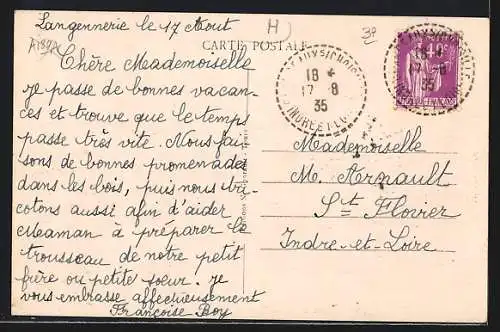 Langennerie le 17 Août
H
CARTE POSTALE
Chère Mademoiselle
Je passe de bonnes vacan-
ces et trouve que le temps
passe très vite. Nous fai-
sons de bonnes promenades
dans les bois, puis nous tri-
cotons aussi afin d'aider
Maman à préparer le
trousseau de notre petit
frère ou petite soeur. Je
vous embrasse affectueusement
Françoise Boy
18
17 - 8
35
INDRE ET LOIRE
Mademoiselle
M. Arnault
St Flovier
Indre-et-Loire